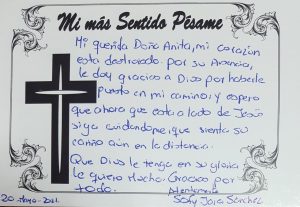 Mi más Sentido Pésame
Mi querida Doña Anita, mi corazón
esta destrozado. por su Ausencia,
le doy gracias a Dios por haberle
puesto en mi camino; y espero
que ahora que esta a lado de Jesús
siga cuidandome, que sienta su
cariño aún en la distancia.
Que Dios le tenga en su gloria
le quiero Mucho. Gracias por
todo. Atentamente
20 - Mayo - 2021. Jara Sánchez